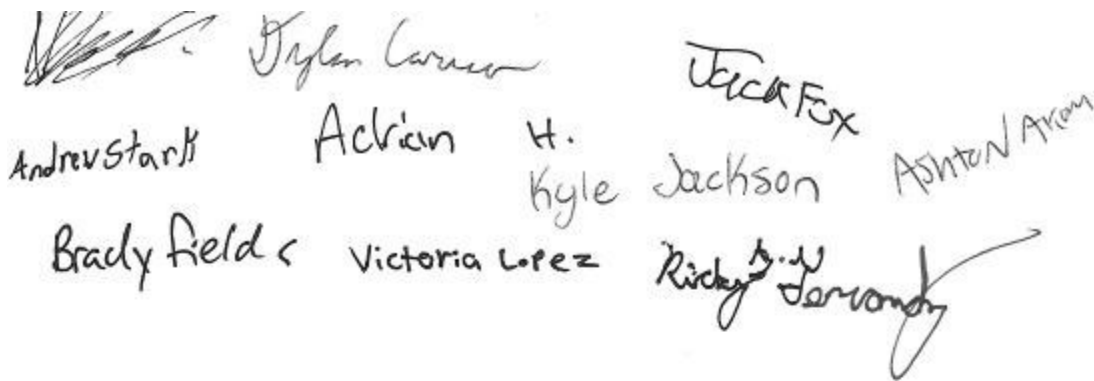 Dylan
Jack Fox
Andrew Stark
Adrian H.
Kyle Jackson
Ashton
Brady Fields
Victoria Lopez
Ricky